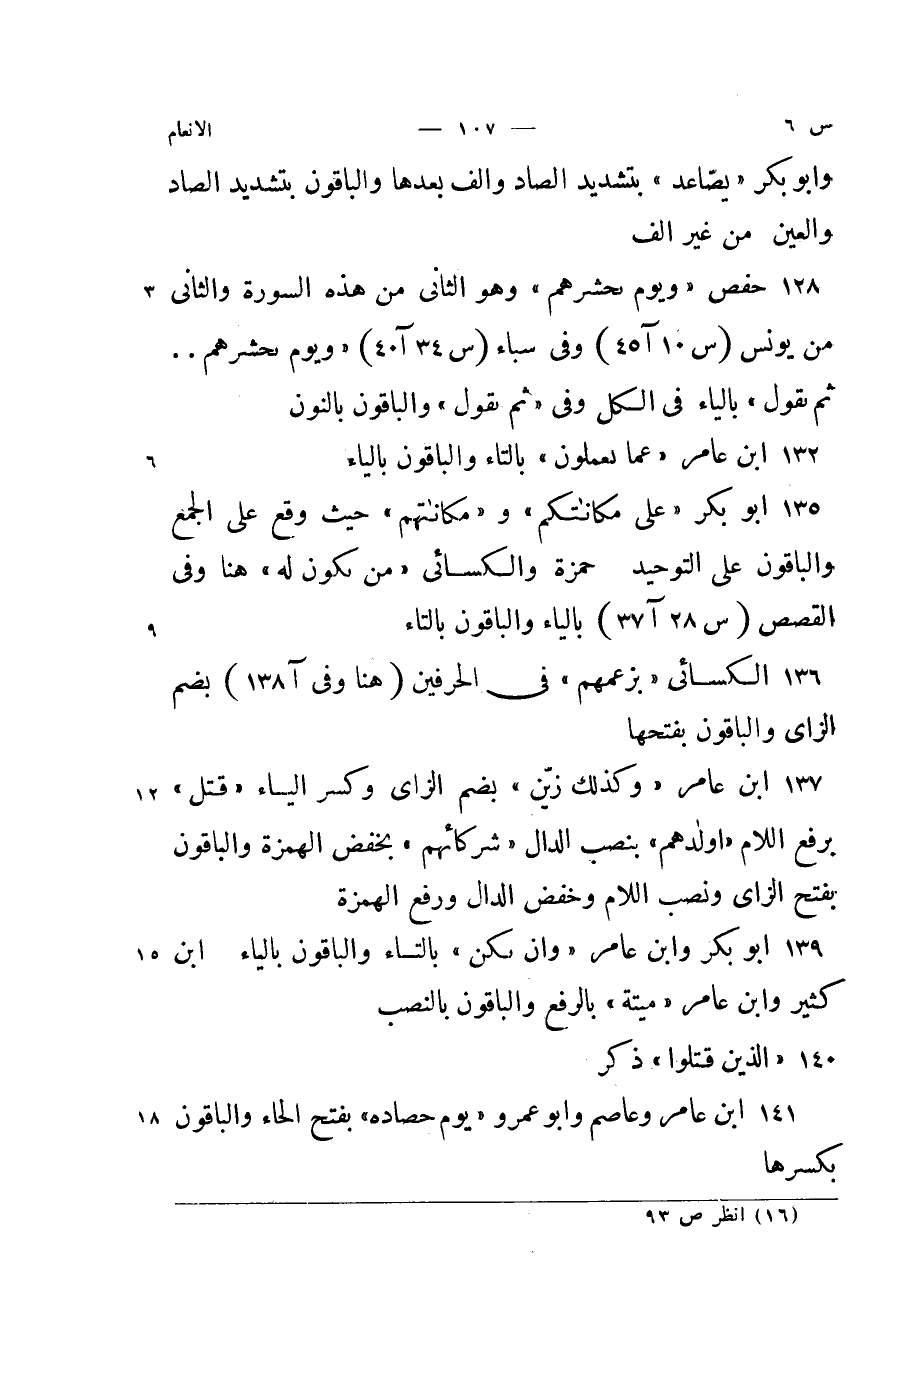 س ٦ — ١٠٧ — الانعام
وابو بكر « يصّاعد » بتشديد الصاد والف بعدها والباقون بتشديد الصاد
والعين من غير الف
١٢٨ حفص « ويوم ٮحشرهم » وهو الثانى من هذه السورة والثانى ٣
من يونس (س ١٠ آ ٤٥) وفى سباء (س ٣٤ آ ٤٠) « ويوم ٮحشرهم ..
ثم ٮقول » بالياء فى الكل وفى « ثم ٮقول » والباقون بالنون
١٣٢ ابن عامر « عما ٮعملون » بالتاء والباقون بالياء ٦
١٣٥ ابو بكر « على مكانٰتكم » و « مكانٰتهم » حيث وقع على الجمع
والباقون على التوحيد حمزة والكسائى « من ٮكون له » هنا وفى
القصص (س ٢٨ آ ٣٧) بالياء والباقون بالتاء ٩
١٣٦ الكسائى « بزعمهم » فى الحرفين (هنا وفى آ ١٣٨) بضم
الزاى والباقون بفتحها
١٣٧ ابن عامر « وكذلك زيّن » بضم الزاى وكسر الياء « قتل » ١٢
برفع اللام «اولٰدهم» بنصب الدال « شركائهم » بخفض الهمزة والباقون
بفتح الزاى ونصب اللام وخفض الدال ورفع الهمزة
١٣٩ ابو بكر وابن عامر « وان ٮكن » بالتاء والباقون بالياء ابن ١٥
كثير وابن عامر « ميتة » بالرفع والباقون بالنصب
١٤٠ « الذين قتلوا » ذكر
١٤١ ابن عامر وعاصم وابو عمرو « يوم حصاده» بفتح الحاء والباقون ١٨
بكسرها
(١٦) انظر ص ٩٣